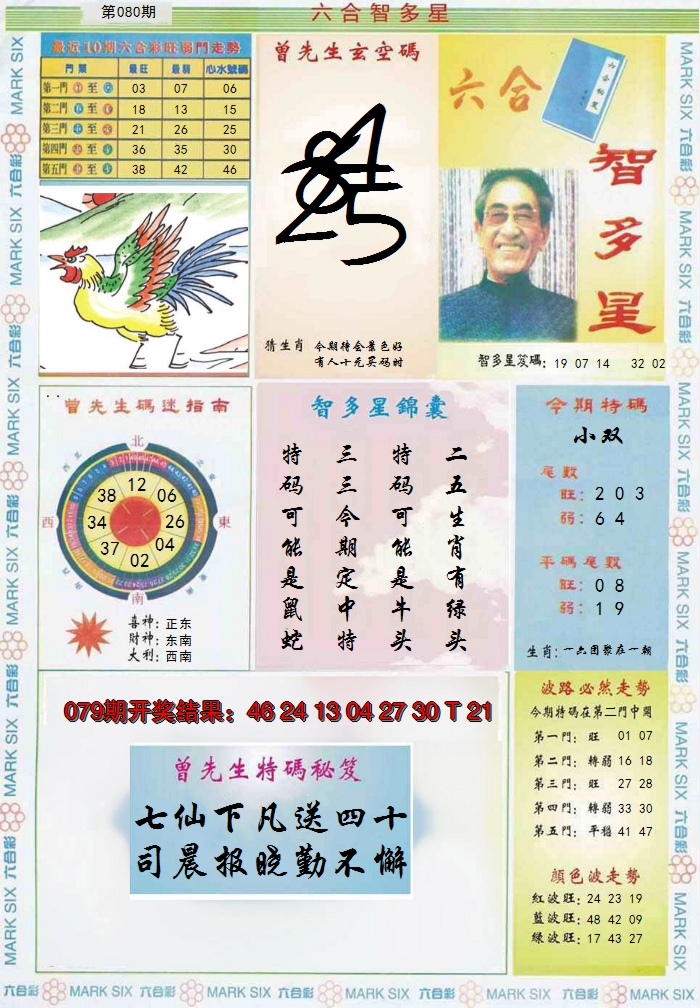 第080期
六合智多星
最近10期六合彩旺弱門走勢
門類 最旺 最弱 心水號碼
第一門 至 03 07 06
第二門 至 18 13 15
第三門 至 21 26 25
第四門 至 36 35 30
第五門 至 38 42 46
曾先生玄空碼
猜生肖 今期待会景色好
有人十元买码时
六合
智多星
智多星笈碼: 19 07 14 32 02
曾先生碼迷指南
北
西
東
南
12
38 06
34 26
37 04
02
喜神: 正东
財神: 东南
大利: 西南
智多星錦囊
二五生肖有绿头
特码可能是牛头
三三今期定中特
特码可能是鼠蛇
今期特碼
小双
尾數
旺: 2 0 3
弱: 6 4
平碼尾數
旺: 0 8
弱: 1 9
生肖: 一六团聚在一朝
079期开奖结果: 46 24 13 04 27 30 T 21
曾先生特碼秘笈
七仙下凡送四十
司晨报晓勤不懈
波路必然走勢
今期特碼在第二門中開
第一門: 旺 01 07
第二門: 轉弱 16 18
第三門: 旺 27 28
第四門: 轉弱 33 30
第五門: 平穩 41 47
顏色波走勢
紅波旺: 24 23 19
藍波旺: 48 42 09
綠波旺: 17 43 27
MARK SIX 六合彩 MARK SIX 六合彩 MARK SIX 六合彩 MARK SIX 六合彩 MARK SIX